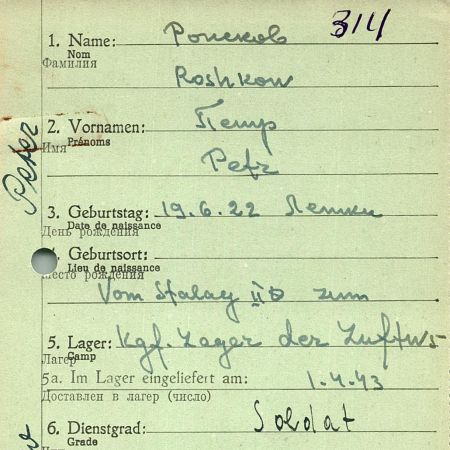 314
1. Name: Рошков
Nom
Фамилия
Roshkow
2. Vornamen: Петр
Prénoms
Имя
Petr
Peter
3. Geburtstag: 19.6.22
Date de naissance
День рождения
Geburtsort:
Lieu de naissance
Место рождения
Vom Stalag II D zum
5. Lager: Kgf. Lager der Luftw
Camp
Лагерь
5a. Im Lager eingeliefert am: 1.4.43
Доставлен в лагер (число)
6. Dienstgrad: Soldat
Grade